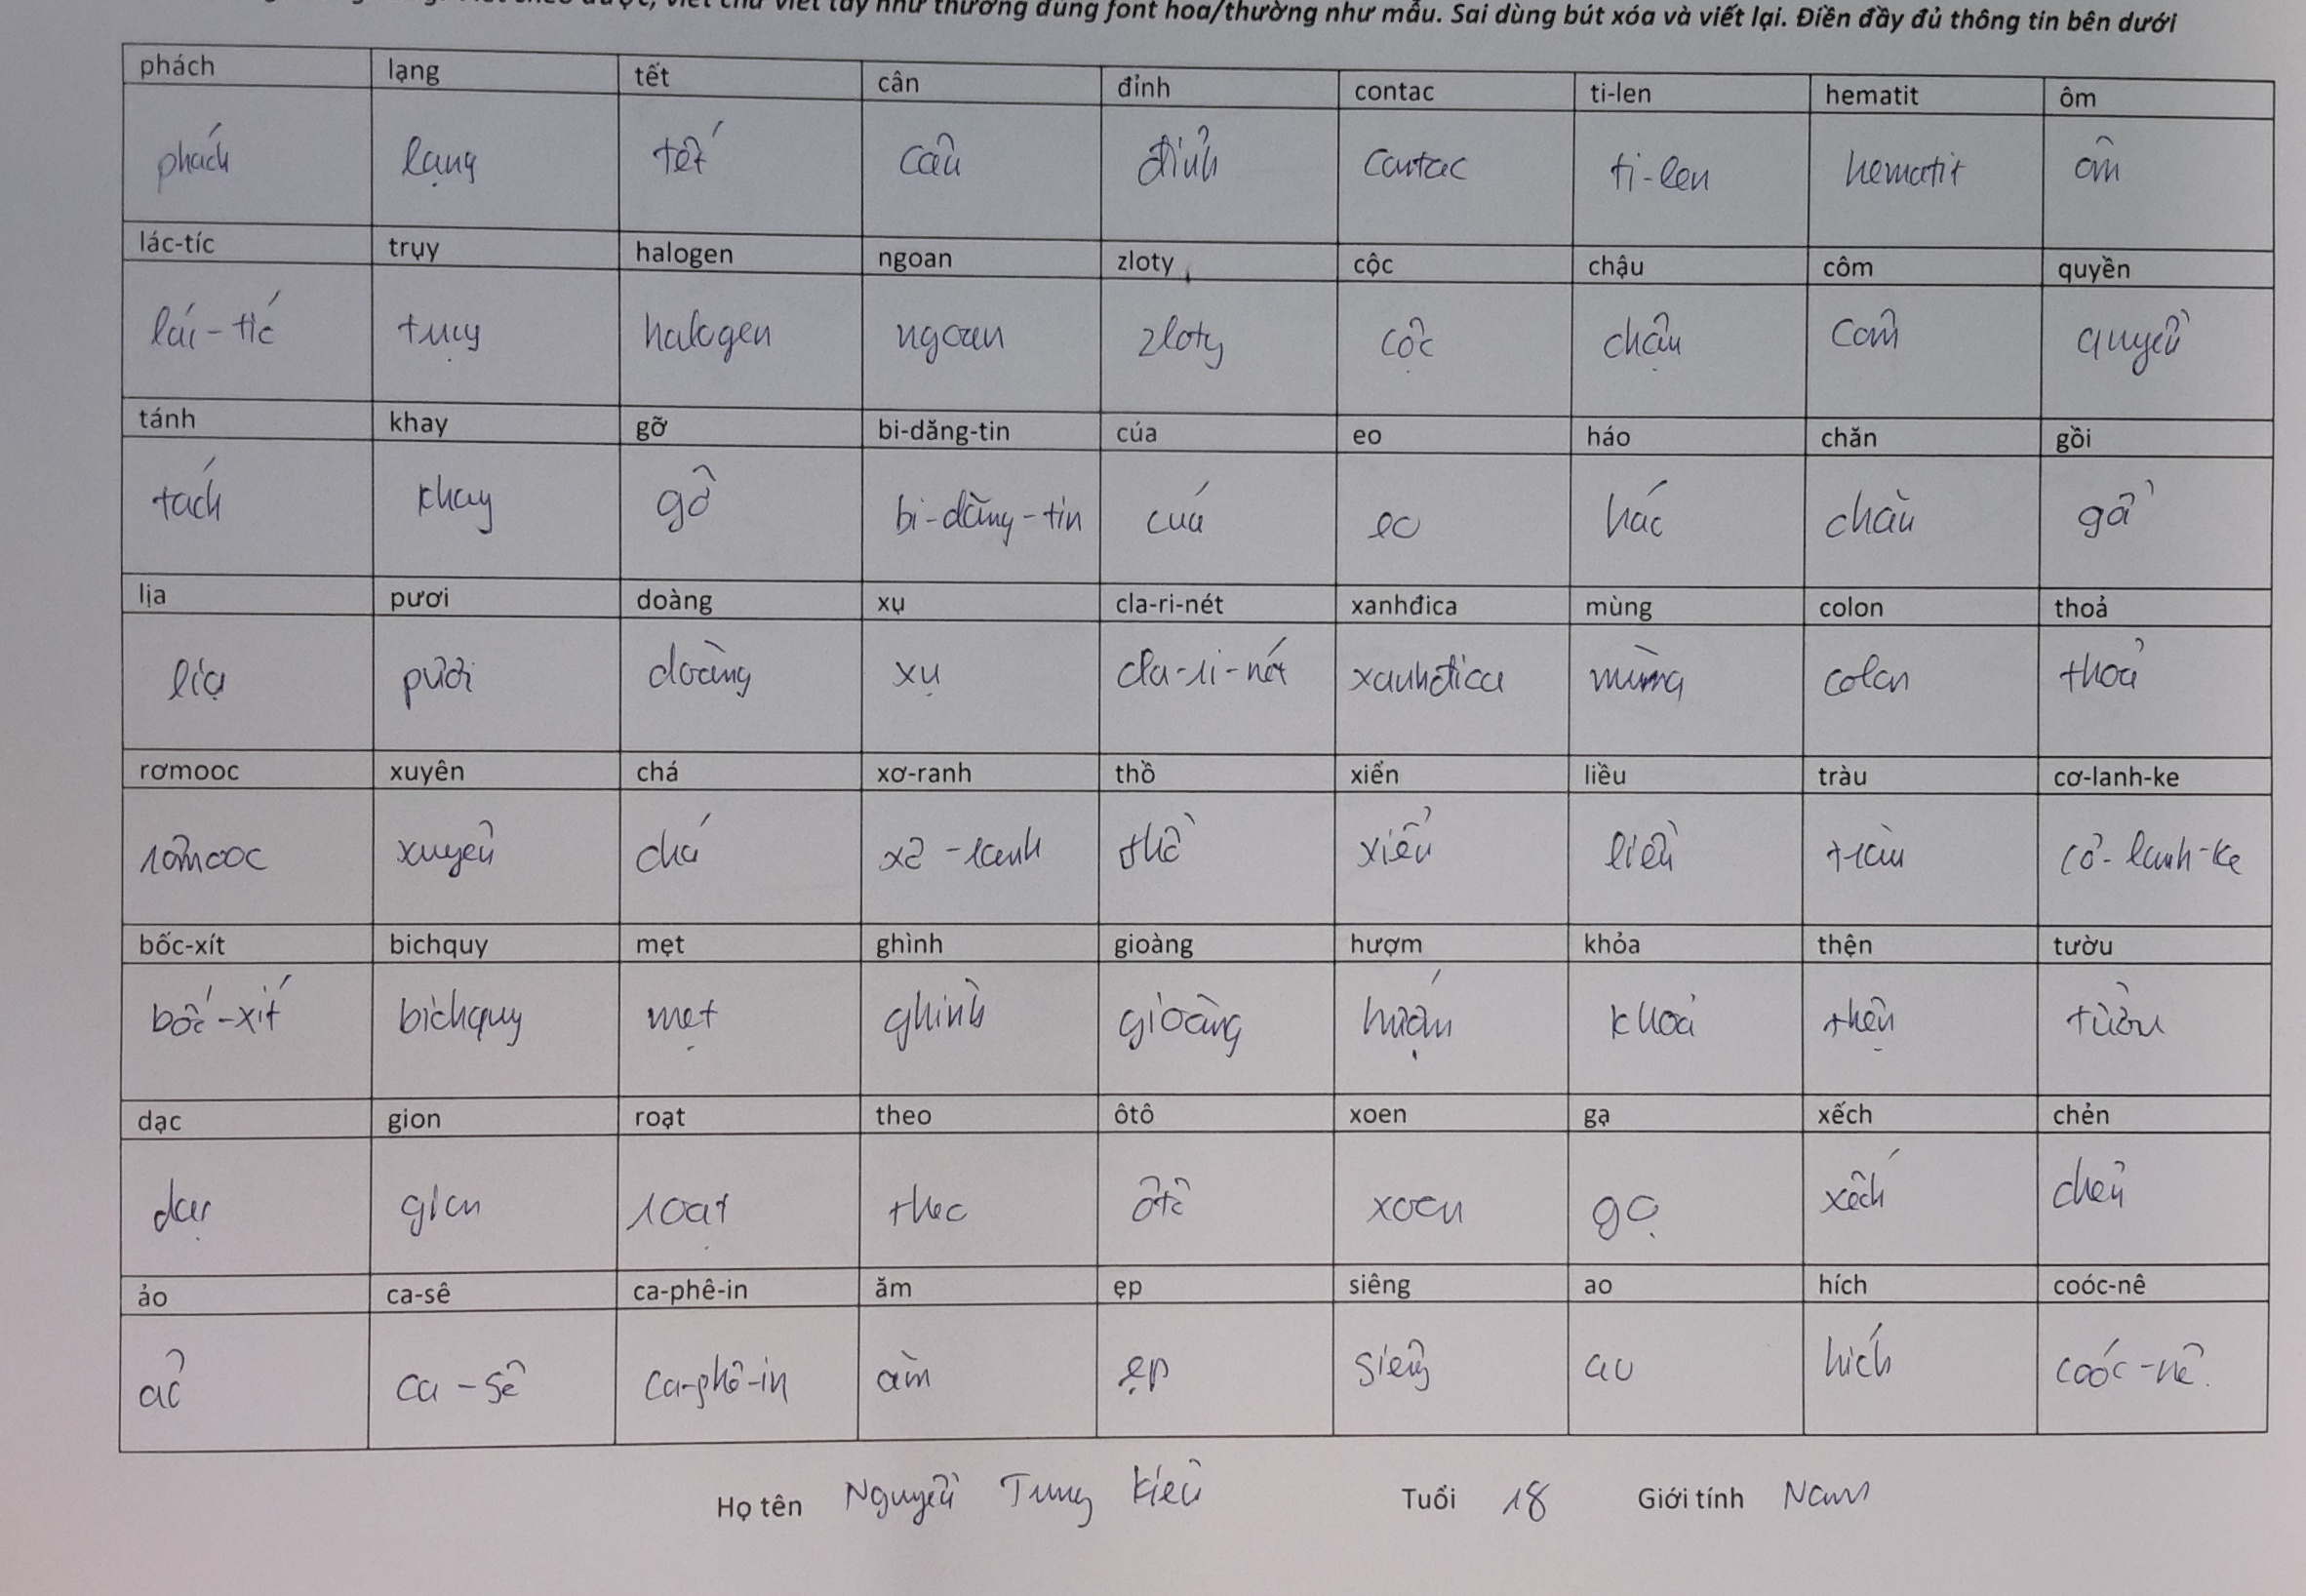 viết chữ viết tay như thường dùng font hoa/thường như mẫu. Sai dùng bút xóa và viết lại. Điền đầy đủ thông tin bên dưới
phách lạng tết cân đỉnh contac ti-len hematit ôm
phách lạng tết cân đỉnh contac ti-len hematit ôm
lác-tíc trụy halogen ngoan zloty cộc chậu côm quyền
lác-tíc trụy halogen ngoan zloty cộc chậu côm quyền
tánh khay gỡ bi-dăng-tin cúa eo háo chăn gồi
tánh khay gỡ bi-dăng-tin cúa eo háo chăn gồi
lịa pươi doàng xụ cla-ri-nét xanhđica mùng colon thoả
lịa pươi doàng xụ cla-ri-nét xanhđica mùng colon thoả
rơmooc xuyên chá xơ-ranh thồ xiển liều tràu cơ-lanh-ke
rơmooc xuyên chá xơ-ranh thồ xiển liều tràu cơ-lanh-ke
bốc-xít bichquy mẹt ghình gioàng hượm khỏa thện tườu
bốc-xít bichquy mẹt ghình gioàng hượm khoả thện tườu
dạc gion roạt theo ôtô xoen gạ xếch chẻn
dạc gion roạt theo ôtô xoen gạ xếch chẻn
ảo ca-sê ca-phê-in ăm ẹp siêng ao hích coóc-nê
ảo ca-sê ca-phê-in ăm ẹp siêng ao hích coóc-nê
Họ tên Nguyễn Tung Kiên Tuổi 18 Giới tính Nam